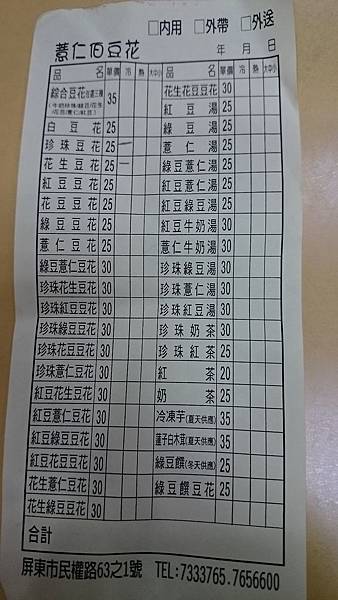 □內用 □外帶 □外送
薏仁伯豆花 年 月 日
品 名 單價 冷 熱 大中小 花生花豆豆花 30
綜合豆花 35 紅豆湯 25
白豆花 25 綠豆湯 25
珍珠豆花 25 一 薏仁湯 25
花生豆花 25 一 綠豆薏仁湯 25
紅豆豆花 25 紅豆薏仁湯 25
花豆豆花 25 紅豆綠豆湯 25
綠豆豆花 25 紅豆牛奶湯 30
薏仁豆花 25 薏仁牛奶湯 30
綠豆薏仁豆花 30 珍珠綠豆湯 30
珍珠花生豆花 30 珍珠薏仁湯 30
珍珠紅豆豆花 30 珍珠紅豆湯 30
珍珠綠豆豆花 30 珍珠奶茶 30
珍珠花豆豆花 30 珍珠紅茶 25
珍珠薏仁豆花 30 紅茶 20
紅豆花生豆花 30 奶茶 25
紅豆薏仁豆花 30 冷凍芋(夏天供應) 35
紅豆綠豆豆花 30 蓮子白木耳(夏天供應) 35
紅豆花豆豆花 30 綠豆饌(冬天供應) 25
花生薏仁豆花 30 綠豆饌豆花 25
花生綠豆豆花 30
合計
屏東市民權路63之1號 TEL:7333765.7656600